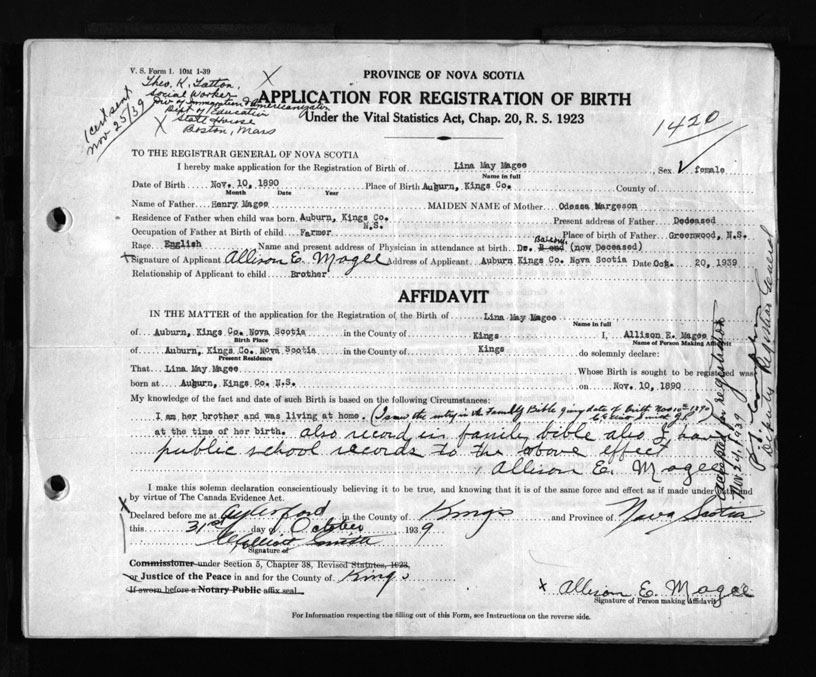 V. S. Form 1. 10M 1-39
Theo. K. Tatton,
Social Worker
Div of Immigration & Americanization
Dept of Education
State House
Boston, Mass
1 cert sent
Nov 25/39
X
X
PROVINCE OF NOVA SCOTIA
APPLICATION FOR REGISTRATION OF BIRTH
Under the Vital Statistics Act, Chap. 20, R. S. 1923
1420
TO THE REGISTRAR GENERAL OF NOVA SCOTIA
I hereby make application for the Registration of Birth of Lina May Magee, Sex female
Name in full
Date of Birth Nov. 10, 1890 Place of Birth Auburn, Kings Co. County of
Month Date Year
Name of Father Henry Magee MAIDEN NAME of Mother Odessa Margeson
Residence of Father when child was born Auburn, Kings Co. N.S. Present address of Father Dedeased
Occupation of Father at Birth of child Farmer Place of birth of Father Greenwood, N.S.
Race English Name and present address of Physician in attendance at birth Dr. (now Deceased)
Signature of Applicant Allison E. Magee Address of Applicant Auburn Kings Co. Nova Scotia Date Oct. 20, 1939
Relationship of Applicant to child Brother
AFFIDAVIT
IN THE MATTER of the application for the Registration of the Birth of Lina May Magee
Name in full
of Auburn, Kings Co. Nova Scotia in the County of Kings I, Allison E. Magee
Birth Place Name of Person Making Affidavit
of Auburn, Kings Co. Nova Scotia in the County of Kings do solemnly declare:
Present Residence
That Lina May Magee Whose Birth is sought to be registered was
born at Auburn, Kings Co. N.S. on Nov. 10, 1890
My knowledge of the fact and date of such Birth is based on the following Circumstances:
I am her brother and was living at home. (I saw the entry in the Family Bible giving date of Birth Nov 10th 1890
at the time of her birth. also record in family bible also I have
public school records to the above effect
Allison E. Magee
I make this solemn declaration conscientiously believing it to be true, and knowing that it is of the same force and effect as if made under oath and
by virtue of The Canada Evidence Act.
X Declared before me at Aylesford in the County of Kings and Province of Nova Scotia
this 31st day of October 1939
Signature of
Commissioner under Section 5, Chapter 38, Revised Statutes, 1923,
or Justice of the Peace in and for the County of Kings
If sworn before a Notary Public affix seal
X Allison E. Magee
Signature of Person making Affidavit
For Information respecting the filling out of this Form, see Instructions on the reverse side.
accepted for registration
Nov. 24, 1939
Deputy Registrar General